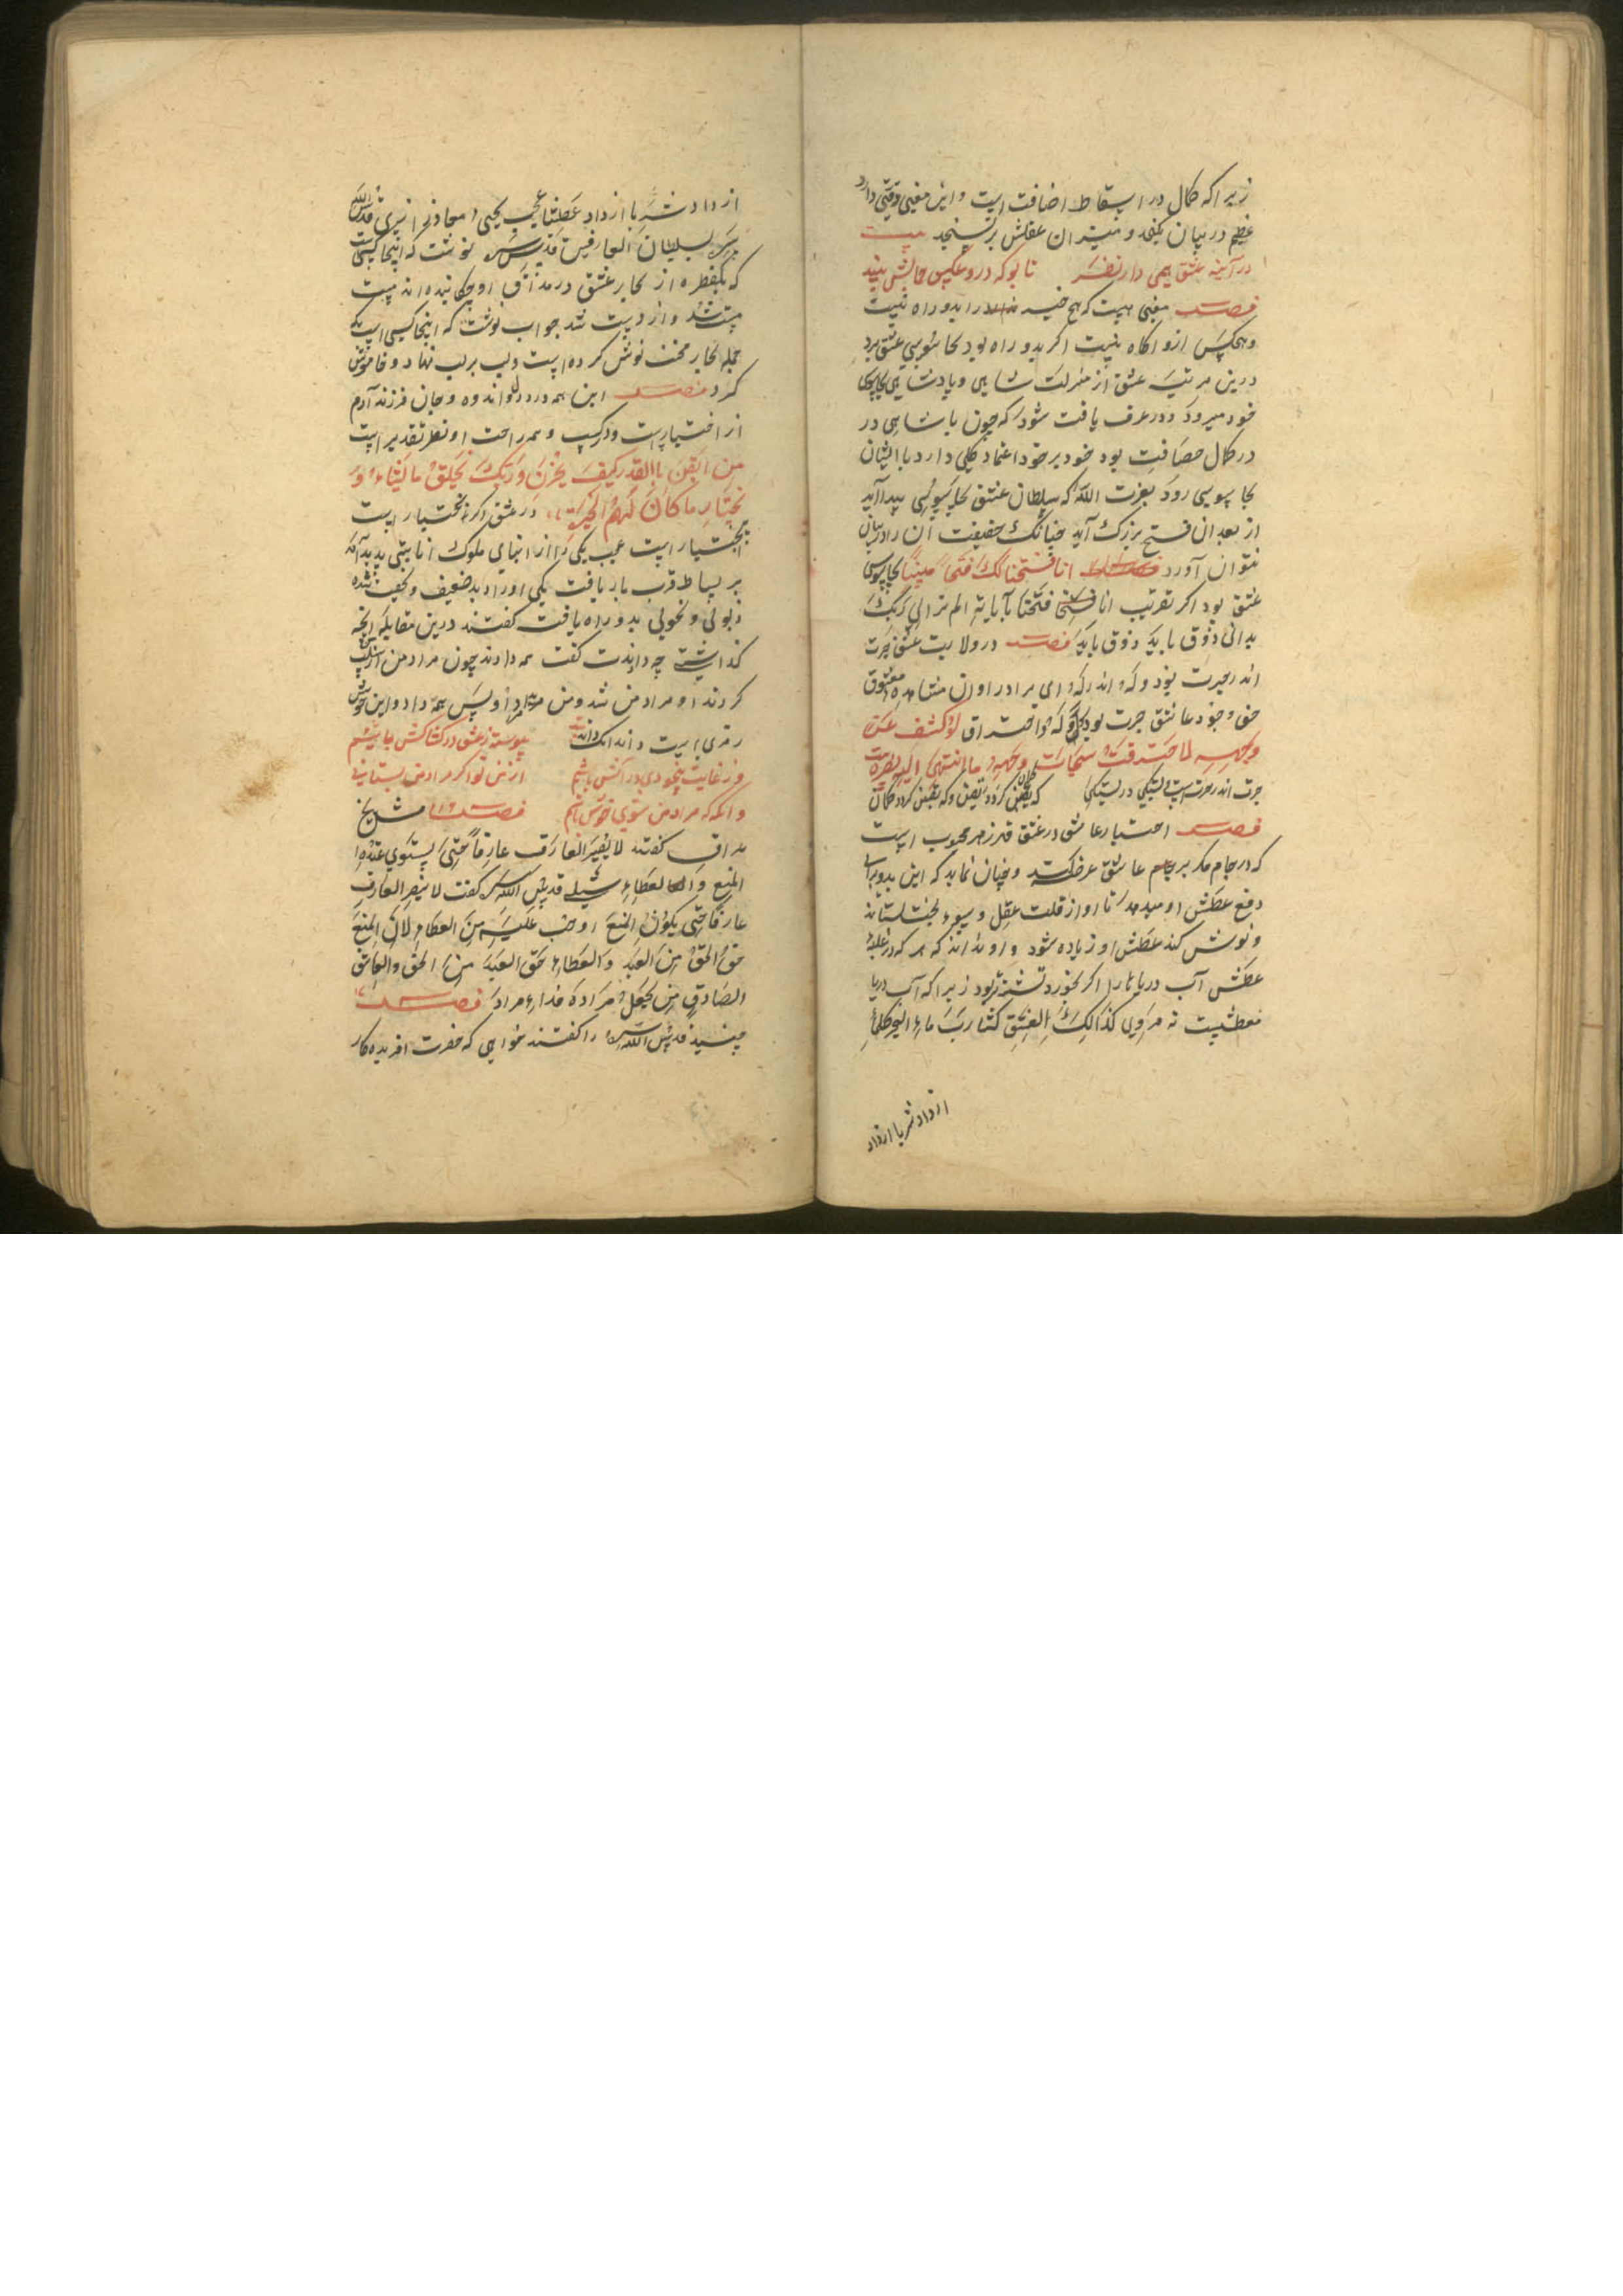 زیرا که کمال در اسقاط اضافت است و این معنی وقتی دارد
عظیم در بیان نکنجد و میزان عقلش بر نسنجد بیت
در آینه عشق همی دار نظر تا بو که درو عکس جمالش بینید
فصل معنی هست که هیچ در ابدو راه نیست
وهیچکس ازو آکاه نیست اکر بدو راه بود بجاسوسی عشق برد
درین مرتبه عشق از منزلت شاهی و پادشاهی بجاسوسی
خود میرود ودر عرف یافت شود که چون پادشاهی در
در کمال حصافت بود خود بر خود اعتماد کلی دارد با ایشان
بجاسوسی رود بعزت الله که سلطان عشق بجاسوسی پیدا آید
از بعد آن فتح بزرک آید چنانک حقیقت آن را در بیان
نتوان آورد فصل انا فتحنا لک فتحا مبینا بجاسوسی
عشق بود اکر تقریب انا فتحنا بآیات الم تر الی ربک
بدانی ذوق یابی ذوق یابی فصل در ولایت عشق حیرت
اندر حیرت بود وله واندر وله ای برادر اوان مشاهده معشوق
حق وجود عاشق حیرت بود وله واحتراق لو کشف عن
وجهه لاحترقت سبحات وجهه ما انتهی الیه بصره بیت
حیرت اندر حیرت است بستکی در بستکی که یقین کردد کمان وکه یقین کردد کمان
فصل اختیار عاشق در عشق قدر زهر محبوب است
که در جام مکر بر جام عاشق عرضه کند وچنان نماید که این بدو برای
دفع عطش او میدهد تا او از قلت عقل وسوء بخت بستاند
ونوش کند عطش او زیاده شود و او نداند که هر که در غلبه
عطش آب دریا را اکر بخورد تشنه تر بود زیرا که آب دریا
معطش است نه مروی کذالک العشق کشارب ماء البحر کلما
ازداد شربا ازداد
ازداد شربا ازداد عطشا عجب یحیی معاذ رازی قدس الله
سره بسلطان العارفین قدس سره نوشت که اینجا کسیست
که یکقطره از بحار عشق در مذاق او چکانیده اند مست
مست شد واز دست شد جواب نوشت که اینجا کسی است که
جمله بحار محبت نوش کرده است ولب بر لب نهاد وخاموش
کرد فصل این همه درد دل واندوه وجان فرزند آدم
از اختیارست ودر کسب وهمه راحت او نظر تقدیر است
من ایقن باالقدر کیف یحزن وربک یخلق ما یشاء و
یختار ما کان لهم الخیرة در عشق اکر اختیار است
بی اختیار است عجب یکی را از ابنای ملوک انابتی پدید آمد
بر بساط قرب بار یافت یکی اورا دید ضعیف ونحیف شده
ذبولی ونحولی بدو راه یافت کفتند درین مقابله آنچه
کذاشتی چه دادندت کفت همه دادند چون مراد من از من سلب
کردند او مراد من شد ومن مراد او پس همه داد واین خوش
رمزی است داند آنک داند بیت پیوسته ز عشق در کشاکش باشیم
وز غایت بیخودی در آتش باشیم از من تو اکر مراد من بستانی
وآنکه که مراد من شوی خوش باشم فصل مشایخ
عراق کفتند لا یصیر العارف عارفا حتی یستوی عنده
المنع والعطاء شبلی قدس الله سره کفت لا یصیر العارف
عارفا حتی یکون المنع اوجب علیه من العطاء لان المنع
حق الحق من العبد والعطاء حق العبد من الحق والعاشق
الصادق من یجعل مراده فداء مراد فصل
جنید قدس الله سره را کفتند خواهی که حضرت آفریده کار